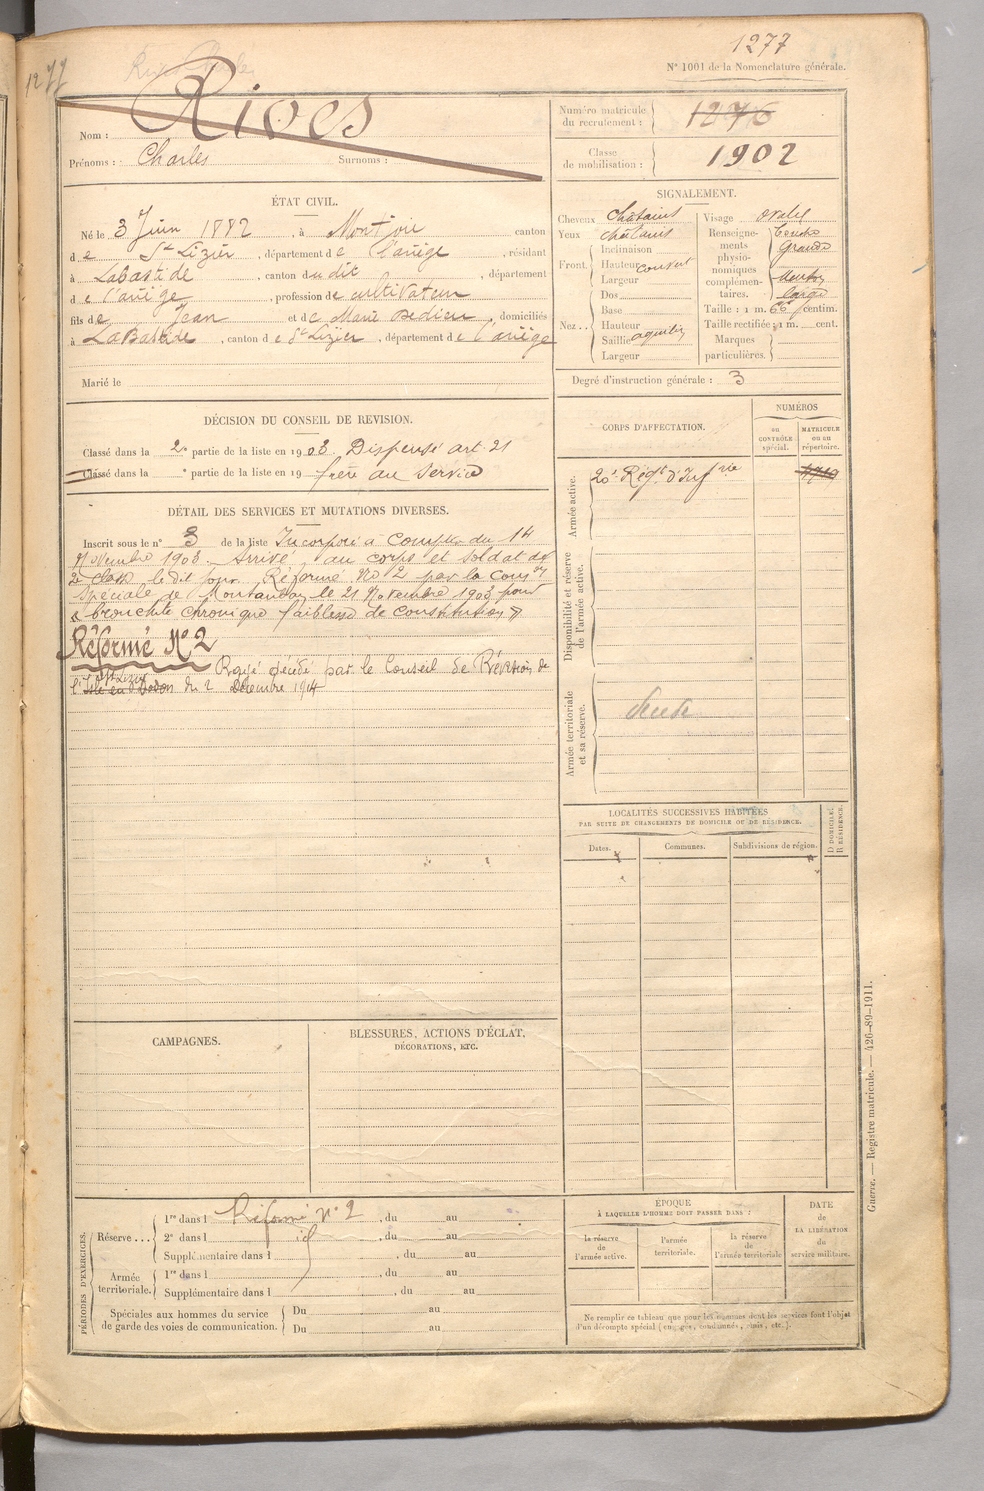 1277
1277
N° 1001 de la Nomenclature générale.
Nom : Rives
Prénoms : Charles Surnoms :
Numéro matricule du recrutement : 1276
Classe de mobilisation : 1902
ÉTAT CIVIL.
Né le 3 Juin 1882, à Montjoie canton
de St Lizier, département de l'ariège, résidant
à Labastide, canton dudit, département
de l'ariège, profession de cultivateur
fils de Jean et de Marie Dedieu, domiciliés
à LaBastide, canton de St Lizier, département de l'ariège
Marié le
SIGNALEMENT.
Cheveux châtains
Yeux châtains
Front. Inclinaison
Hauteur couvert
Largeur
Nez.. Dos
Base
Hauteur
Saillie aquilin
Largeur
Visage ovale
Renseignements physionomiques complémentaires. bouche
Grande
Menton
large
Taille : 1 m. 66 centim.
Taille rectifiée : 1 m. cent.
Marques particulières.
Degré d'instruction générale : 3
DÉCISION DU CONSEIL DE REVISION.
Classé dans la 2e partie de la liste en 1903. Dispensé art. 21
Classé dans la e partie de la liste en 19 frère au service
DÉTAIL DES SERVICES ET MUTATIONS DIVERSES.
Inscrit sous le n° 3 de la liste Incorporé à compter du 14
Novembre 1903. Arrivé au corps et soldat de
2e classe ledit jour. Réformé No 2 par la Comon
Spéciale de Montauban le 21 Novembre 1903 pour
« bronchite chronique faiblesse de constitution »
Réformé No 2
Rayé décédé par le Conseil de Révision de
St Lizier
l'Isle en Dodon du 2 Décembre 1914
CORPS D'AFFECTATION.
NUMÉROS
au CONTRÔLE spécial.
MATRICULE ou au répertoire.
Armée active.
20e Régt d'Infrie
Disponibilité et réserve de l'armée active.
Armée territoriale et sa réserve.
LOCALITÉS SUCCESSIVES HABITÉES
PAR SUITE DE CHANGEMENTS DE DOMICILE OU DE RÉSIDENCE.
D DOMICILE. R RÉSIDENCE.
Dates. Communes. Subdivisions de région.
CAMPAGNES.
BLESSURES, ACTIONS D'ÉCLAT,
DÉCORATIONS, ETC.
PÉRIODES D'EXERCICES.
Réserve... 1re dans l Réformé No 2, du au
2e dans l id, du au
Supplémentaire dans l, du au
Armée territoriale. 1re dans l, du au
Supplémentaire dans l, du au
Spéciales aux hommes du service de garde des voies de communication. Du au
Du au
ÉPOQUE
À LAQUELLE L'HOMME DOIT PASSER DANS :
la réserve de l'armée active.
l'armée territoriale.
la réserve de l'armée territoriale
DATE
de
LA LIBÉRATION
du
service militaire.
Ne remplir ce tableau que pour les hommes dont les services font l'objet
d'un décompte spécial (engagés, condamnés, omis, etc.).
Guerre. — Registre matricule. — 426-89-1911.